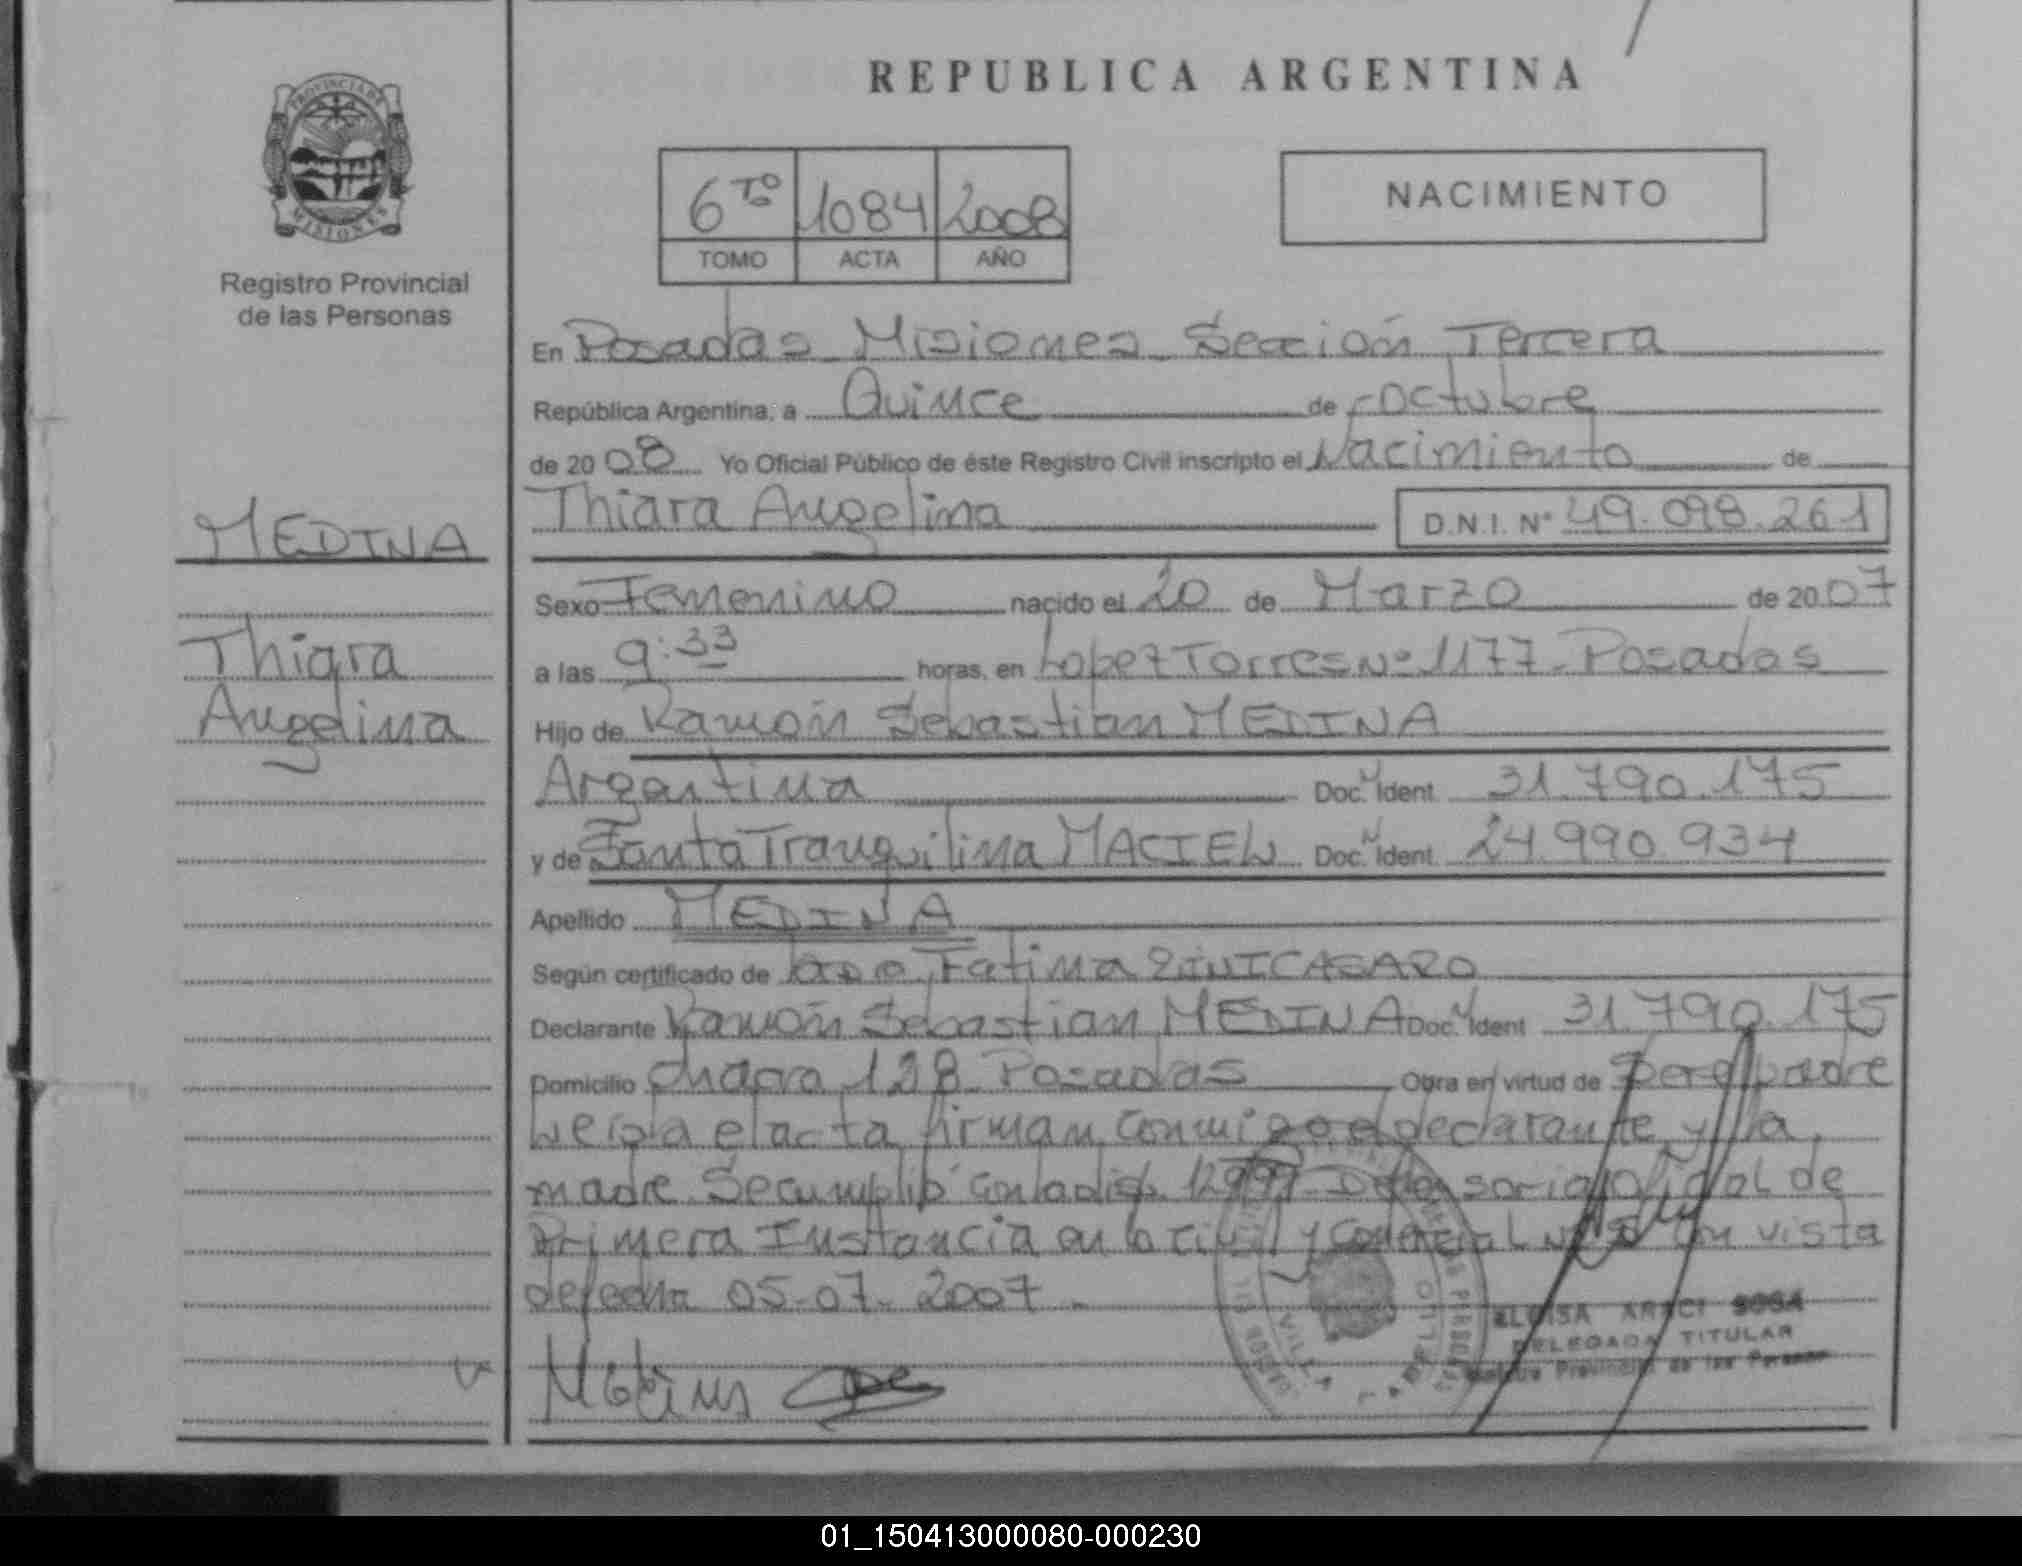 REPUBLICA ARGENTINA
PROVINCIA DE
MISIONES
Registro Provincial
de las Personas
6to 1084 2008
TOMO ACTA AÑO
NACIMIENTO
En Posadas Misiones Sección Tercera
República Argentina, a Quince de Octubre
de 2008 Yo Oficial Público de éste Registro Civil inscripto el Nacimiento de
Thiara Angelina D.N.I. Nº 49.098.261
MEDINA
Thiara
Angelina
Sexo Femenino nacido el 20 de Marzo de 2007
a las 9:33 horas, en Lopez Torres Nº 1177 - Posadas
Hijo de Ramón Sebastian MEDINA
Argentina Doc. Ident. 31.790.175
y de Santa Tranquilina MACIEL Doc. Ident. 24.990.934
Apellido MEDINA
Según certificado de Fatima
Declarante Ramón Sebastian MEDINA Doc. Ident 31.790.175
Domicilio Chacra 128 Posadas Obra en virtud de Ser el padre
Leida el acta firman conmigo el declarante y la
madre Se cumplió con la disp. Defensoria Oficial de
Primera Instancia en lo Civil y Comercial con vista
de fecha 05-07-2007.
ELOISA ARACI SOSA
DELEGADA TITULAR
Registro Provincial de las Personas
01_150413000080-000230